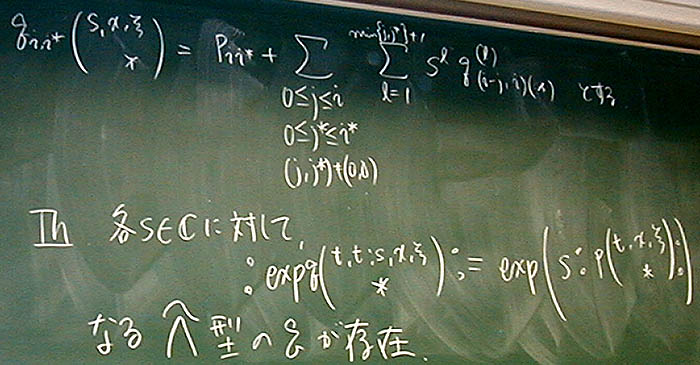 q_{i,i*}(s,x,ξ / *) = P_{ii*} + Σ_{0≤j≤i, 0≤j*≤i*, (j,j*)≠(0,0)} Σ_{l=1}^{min{j,j*}+1} s^l q^{(l)}_{(i-j,i)(*)} とする
Th 各s∈Cに対して,
:exp q(t,t;s,x,ξ / *): = exp(s:p(t,x,ξ / *):)
なる 型のqが存在.